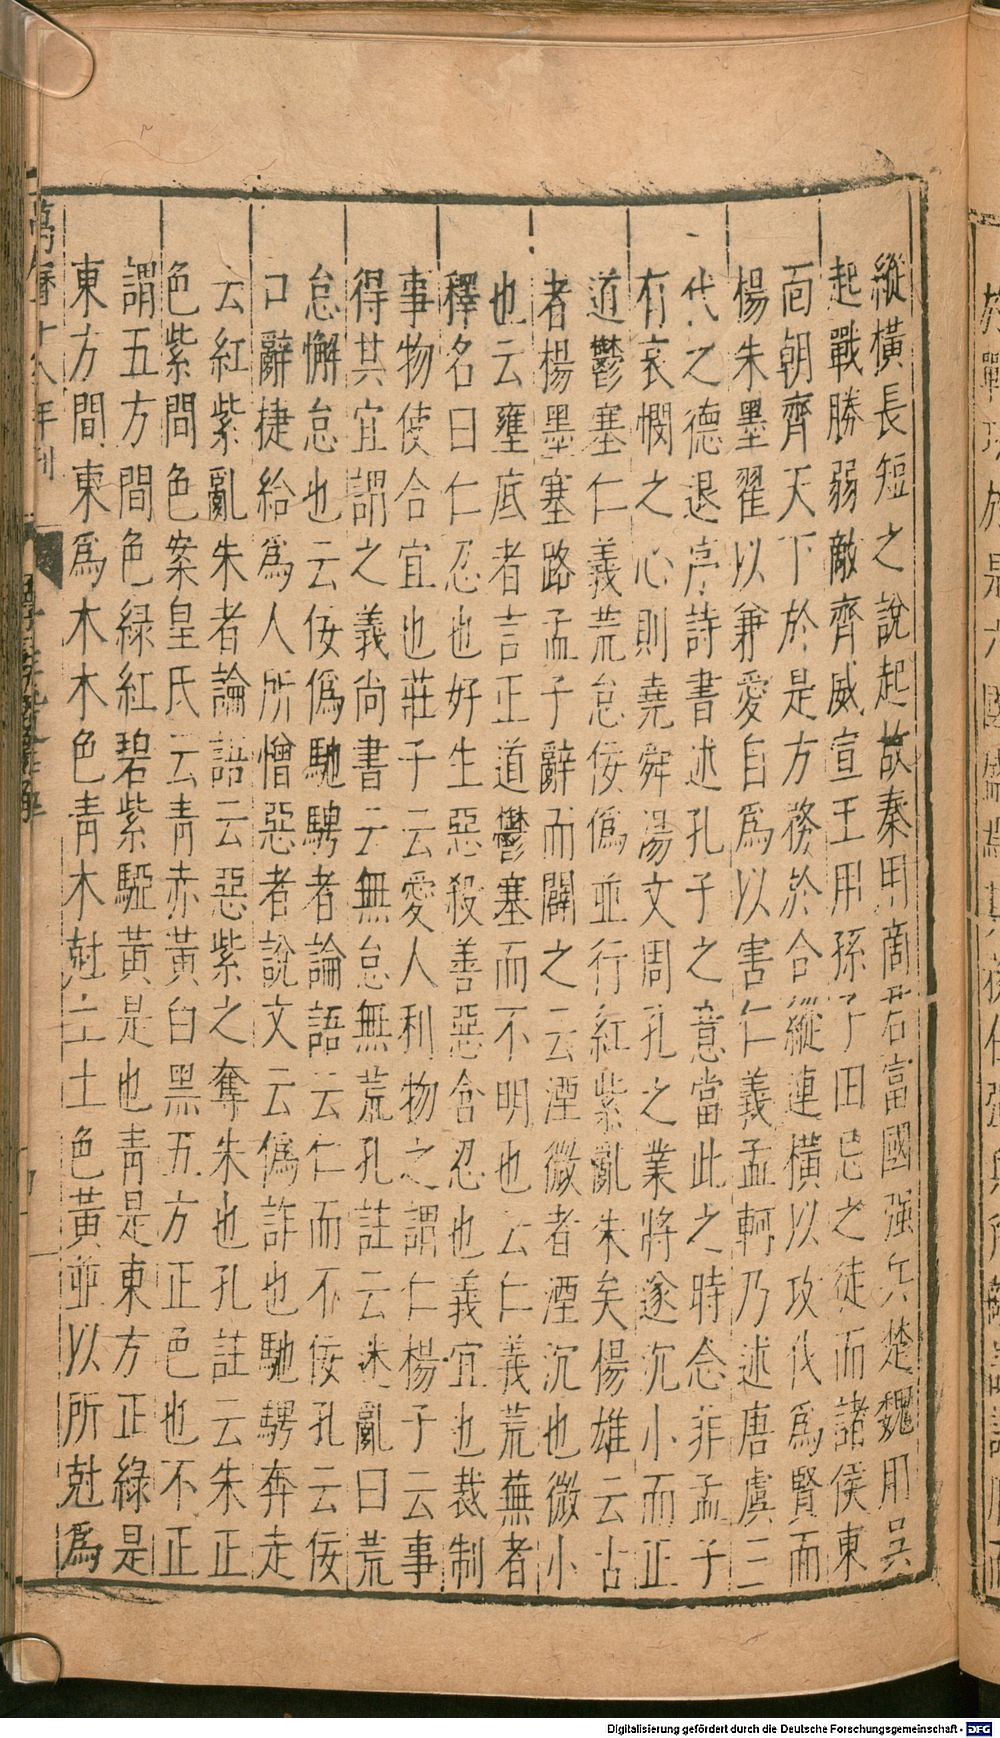 縱橫長短之說起故秦用商君富國強兵楚魏用吳
起戰勝弱敵齊威宣王用孫子田忌之徒而諸侯東
面朝齊天下於是方務於合縱連橫以攻伐為賢而
楊朱墨翟以兼愛自為以害仁義孟軻乃述唐虞三
代之德退序詩書述孔子之意當此之時念非孟子
有哀憫之心則堯舜湯文周孔之業將遂沉小而正
道鬱塞仁義荒怠佞偽並行紅紫亂朱矣楊雄云古
者楊墨塞路孟子辭而闢之云湮微者湮沉也微小
也云壅底者言正道鬱塞而不明也云仁義荒蕪者
釋名曰仁忍也好生惡殺善惡含忍也義宜也裁制
事物使合宜也莊子云愛人利物之謂仁楊子云事
得其宜謂之義尚書云無怠無荒孔註云迷亂曰荒
怠懈怠也云佞偽馳騁者論語云仁而不佞孔云佞
口辭捷給為人所憎惡者說文云偽詐也馳騁奔走
云紅紫亂朱者論語云惡紫之奪朱也孔註云朱正
色紫間色案皇氏云青赤黃白黑五方正色也不正
謂五方間色綠紅碧紫騢黃是也青是東方正綠是
東方間東為木木色青木尅土土色黃並以所尅為
萬曆十八年刊
Digitalisierung gefördert durch die Deutsche Forschungsgemeinschaft - DFG